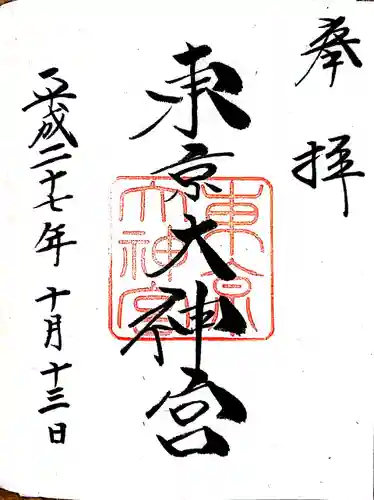 奉拝
東京大神宮
東京大神宮
平成二十七年十月十三日